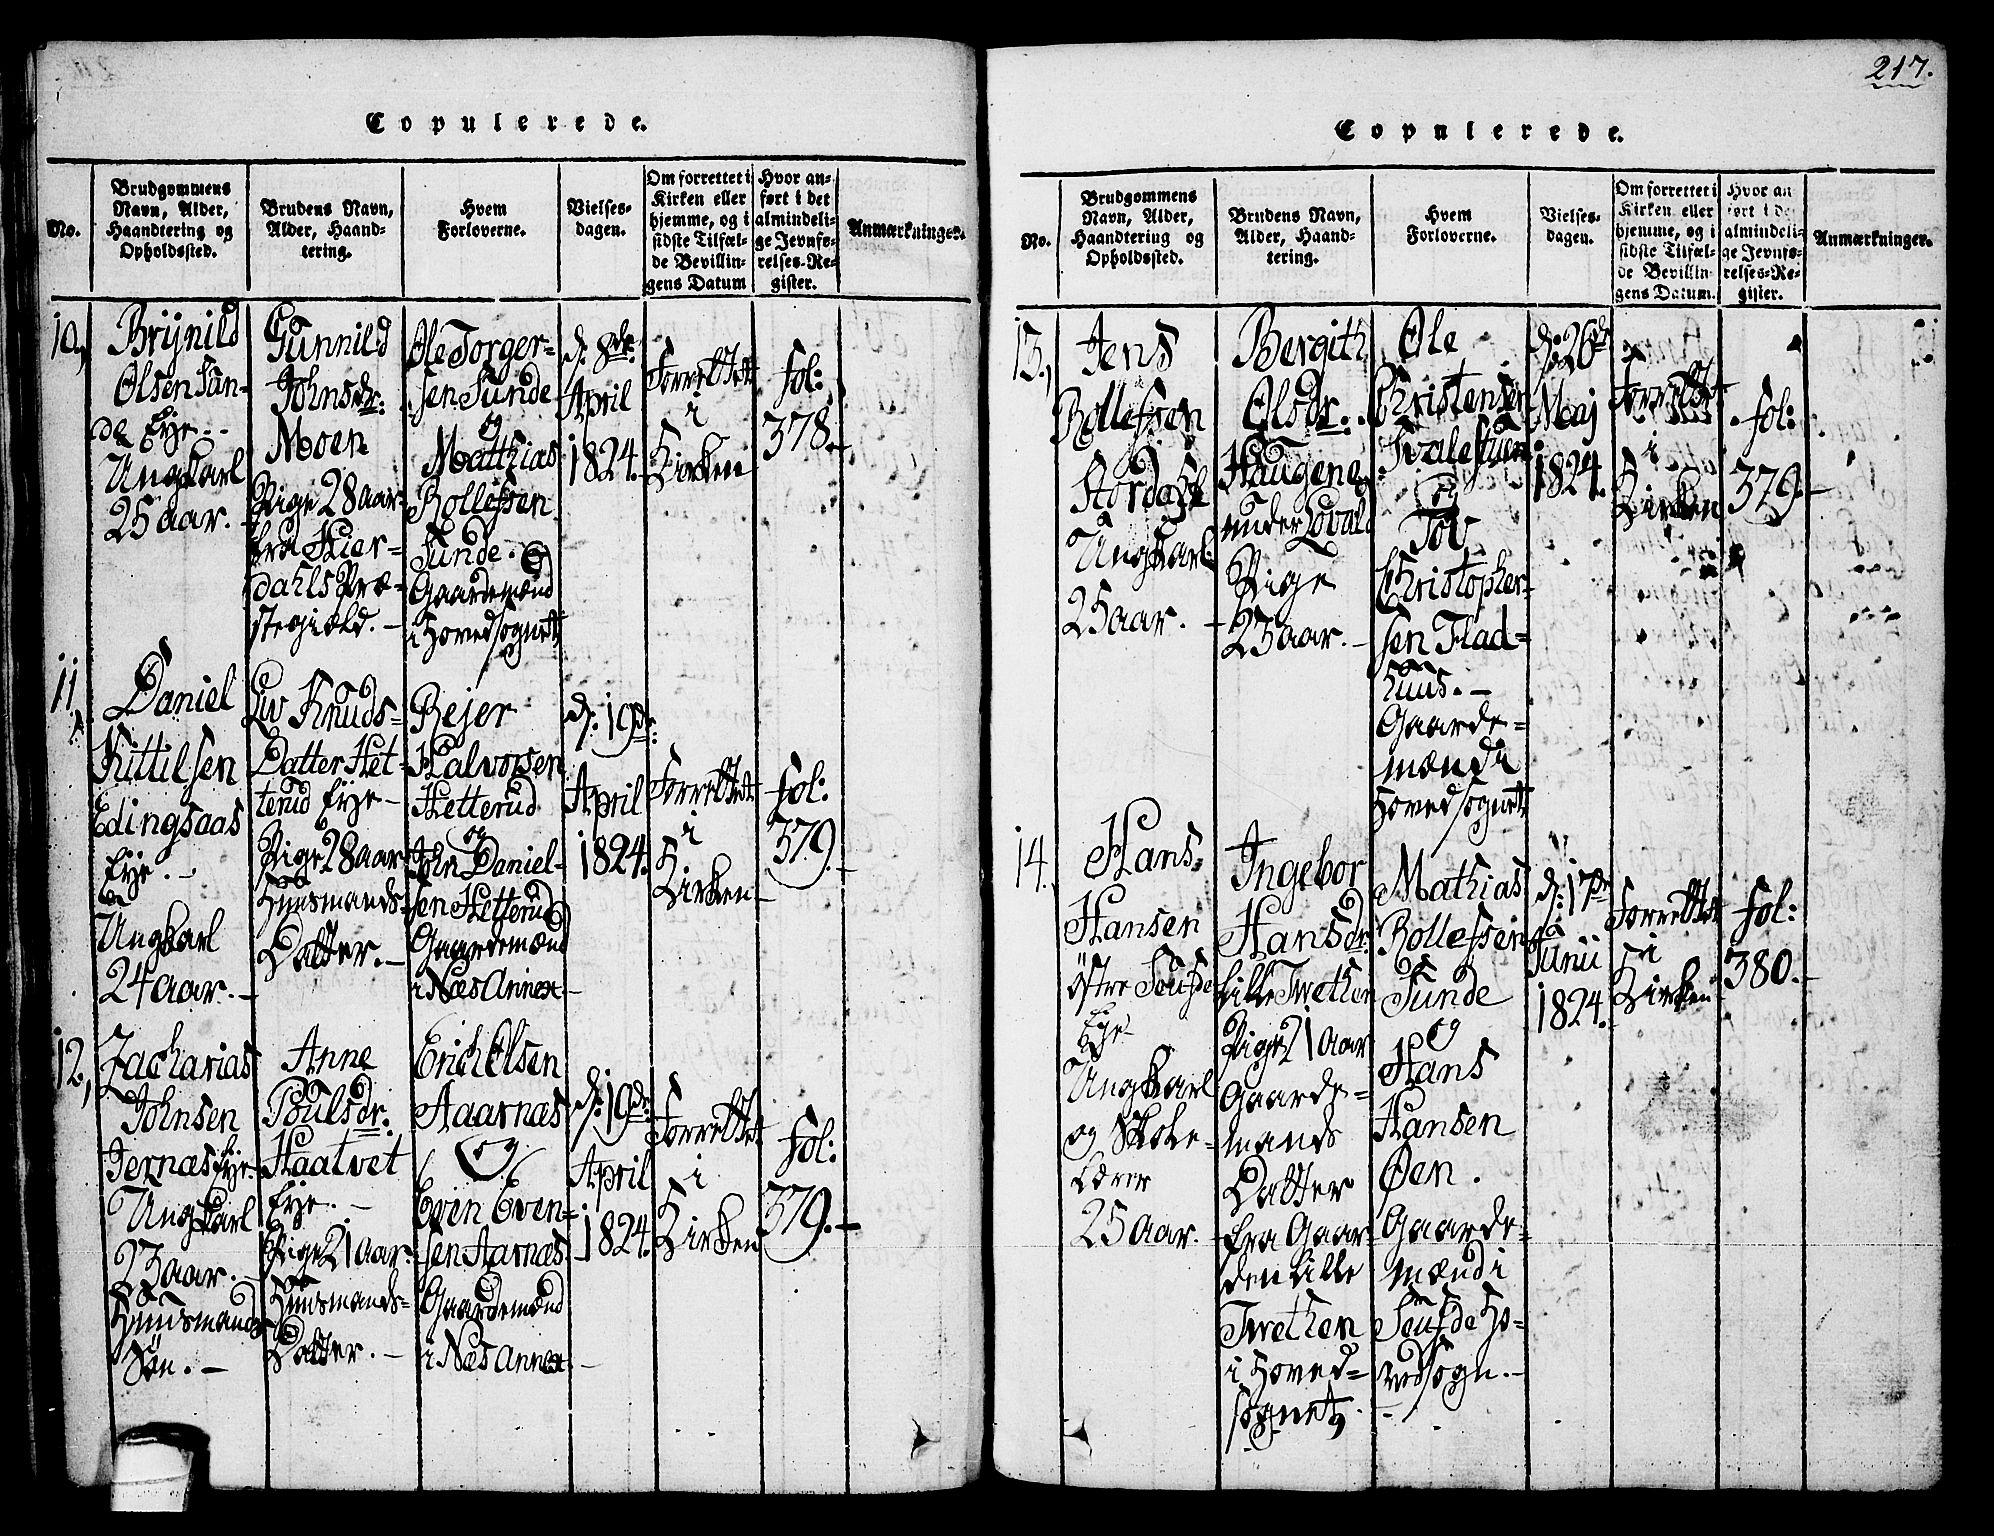 Copulerede.
No.
Brudgommens
Navn, Alder,
Haandtering og
Opholdssted.
Brudens Navn,
Alder, Haand-
tering.
Hvem
Forloverne.
Vielses-
dagen.
Om forrettet i
Kirken eller
hjemme, og i
sidste Tilfæl-
de Bevillin-
gens Datum
Hvor an-
ført i det
almindeli-
ge Jevnfø-
relses-Re-
gister.
Anmærkninger.
10,
Brynild
Olsen Sun-
de Eje.
Ungkarl
25 aar.
Gunnild
Johnsdr:
Moen
Pige 28 aar
fra Hier-
dahls Præ-
stegiæld.
Ole Torger-
sen Sunde
og
Matthias
Rollefsen
Sunde.
Gaardemænd
i Hovedsognet
d: 8de
April
1824.
Forrettet
i
Kirken
fol:
378.
11,
Daniel
Kittilsen
Edingsaas
Eje.
Ungkarl
24 aar.
Liv Knuds-
Datter Het-
terud Eje
Pige 28 aar
Huusmands-
Datter.
Rejer
Halvorsen
Hetterud
og
John Daniel-
sen Hetterud
Gaardemænd
i Næs Annex
d: 19de
April
1824.
Forrettet
i
Kirken
fol:
379.
12,
Zacharias
Johnsen
Jernæs Eje
Ungkarl
23 aar.
Huusmands
Søn.
Anne
Poulsdr:
Haatvet
Eje.
Pige 21 aar.
Huusmands-
Datter.
Erich Olsen
Aarnæs
og
Even Even-
sen Aarnæs
Gaardemænd
i Næs Annex
d: 19de
April
1824.
Forrettet
i
Kirken
fol:
379.
217.
Copulerede.
No.
Brudgommens
Navn, Alder,
Haandtering og
Opholdssted.
Brudens Navn,
Alder, Haand-
tering.
Hvem
Forloverne.
Vielses-
dagen.
Om forrettet i
Kirken eller
hjemme, og i
sidste Tilfæl-
de Bevillin-
gens Datum.
Hvor an-
ført i det
almindeli-
ge Jevnfø-
relses-Re-
gister.
Anmærkninger.
13,
Jens
Rollefsen
Ungkarl
25 aar.
Bergith
Olsdr.
Haugene
under
Pige
23 aar.
Ole
Christensen
og
Tov
Christopher-
sen Flad-
huus.
Gaarde-
mænd i
Hovedsognet
d: 26de
Maj
1824.
Forrettet
i
Kirken
fol:
379.
14.
Hans
Hansen
østre Seufde
Eje
Ungkarl
og Skole-
Lærer
25 aar.
Ingebor
Hansdr:
Lille Twethen
Pige 21 aar
Gaarde-
mands
Datter
fra Gaar-
den Lille
Twethen
i Hoved-
sognet
Mathias
Rollefsen
Sunde
og
Hans
Hansen
Øen.
Gaarde-
mænd i
Seufde Ho-
vedsogn.
d: 17de
Junii
1824.
Forrettet
i
Kirken
fol:
380.